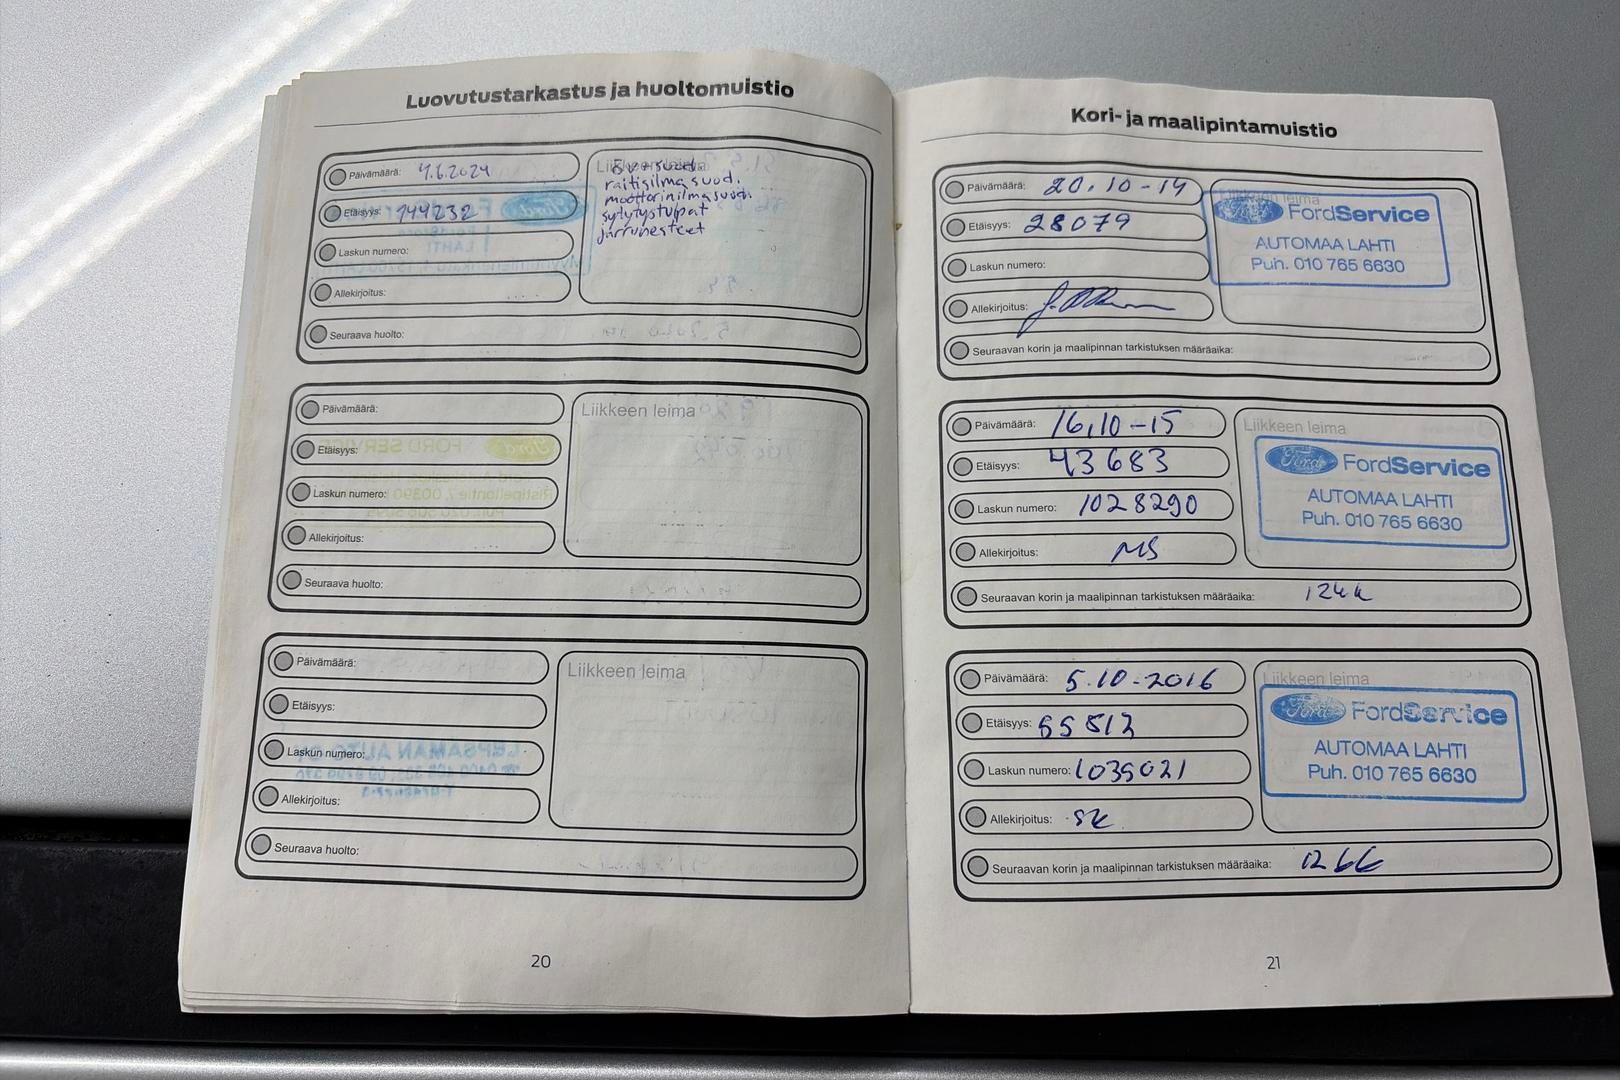 Luovutustarkastus ja huoltomuistio
Päivämäärä: 4.6.2024
Etäisyys: 144232
Laskun numero:
Allekirjoitus:
Seuraava huolto:
Liikkeen leima
raitisilmasuod.
moottorinilmasuod.
sytytystulpat
jarrunesteet
Päivämäärä:
Etäisyys:
Laskun numero:
Allekirjoitus:
Seuraava huolto:
Liikkeen leima
Päivämäärä:
Etäisyys:
Laskun numero:
Allekirjoitus:
Seuraava huolto:
Liikkeen leima
20
Kori- ja maalipintamuistio
Päivämäärä: 20.10-14
Etäisyys: 28079
Laskun numero:
Allekirjoitus:
Seuraavan korin ja maalipinnan tarkistuksen määräaika:
Liikkeen leima
Ford FordService
AUTOMAA LAHTI
Puh. 010 765 6630
Päivämäärä: 16,10-15
Etäisyys: 43683
Laskun numero: 1028290
Allekirjoitus: MS
Seuraavan korin ja maalipinnan tarkistuksen määräaika: 12kk
Liikkeen leima
Ford FordService
AUTOMAA LAHTI
Puh. 010 765 6630
Päivämäärä: 5.10-2016
Etäisyys: 55512
Laskun numero: 1035021
Allekirjoitus:
Seuraavan korin ja maalipinnan tarkistuksen määräaika:
Liikkeen leima
Ford FordService
AUTOMAA LAHTI
Puh. 010 765 6630
21